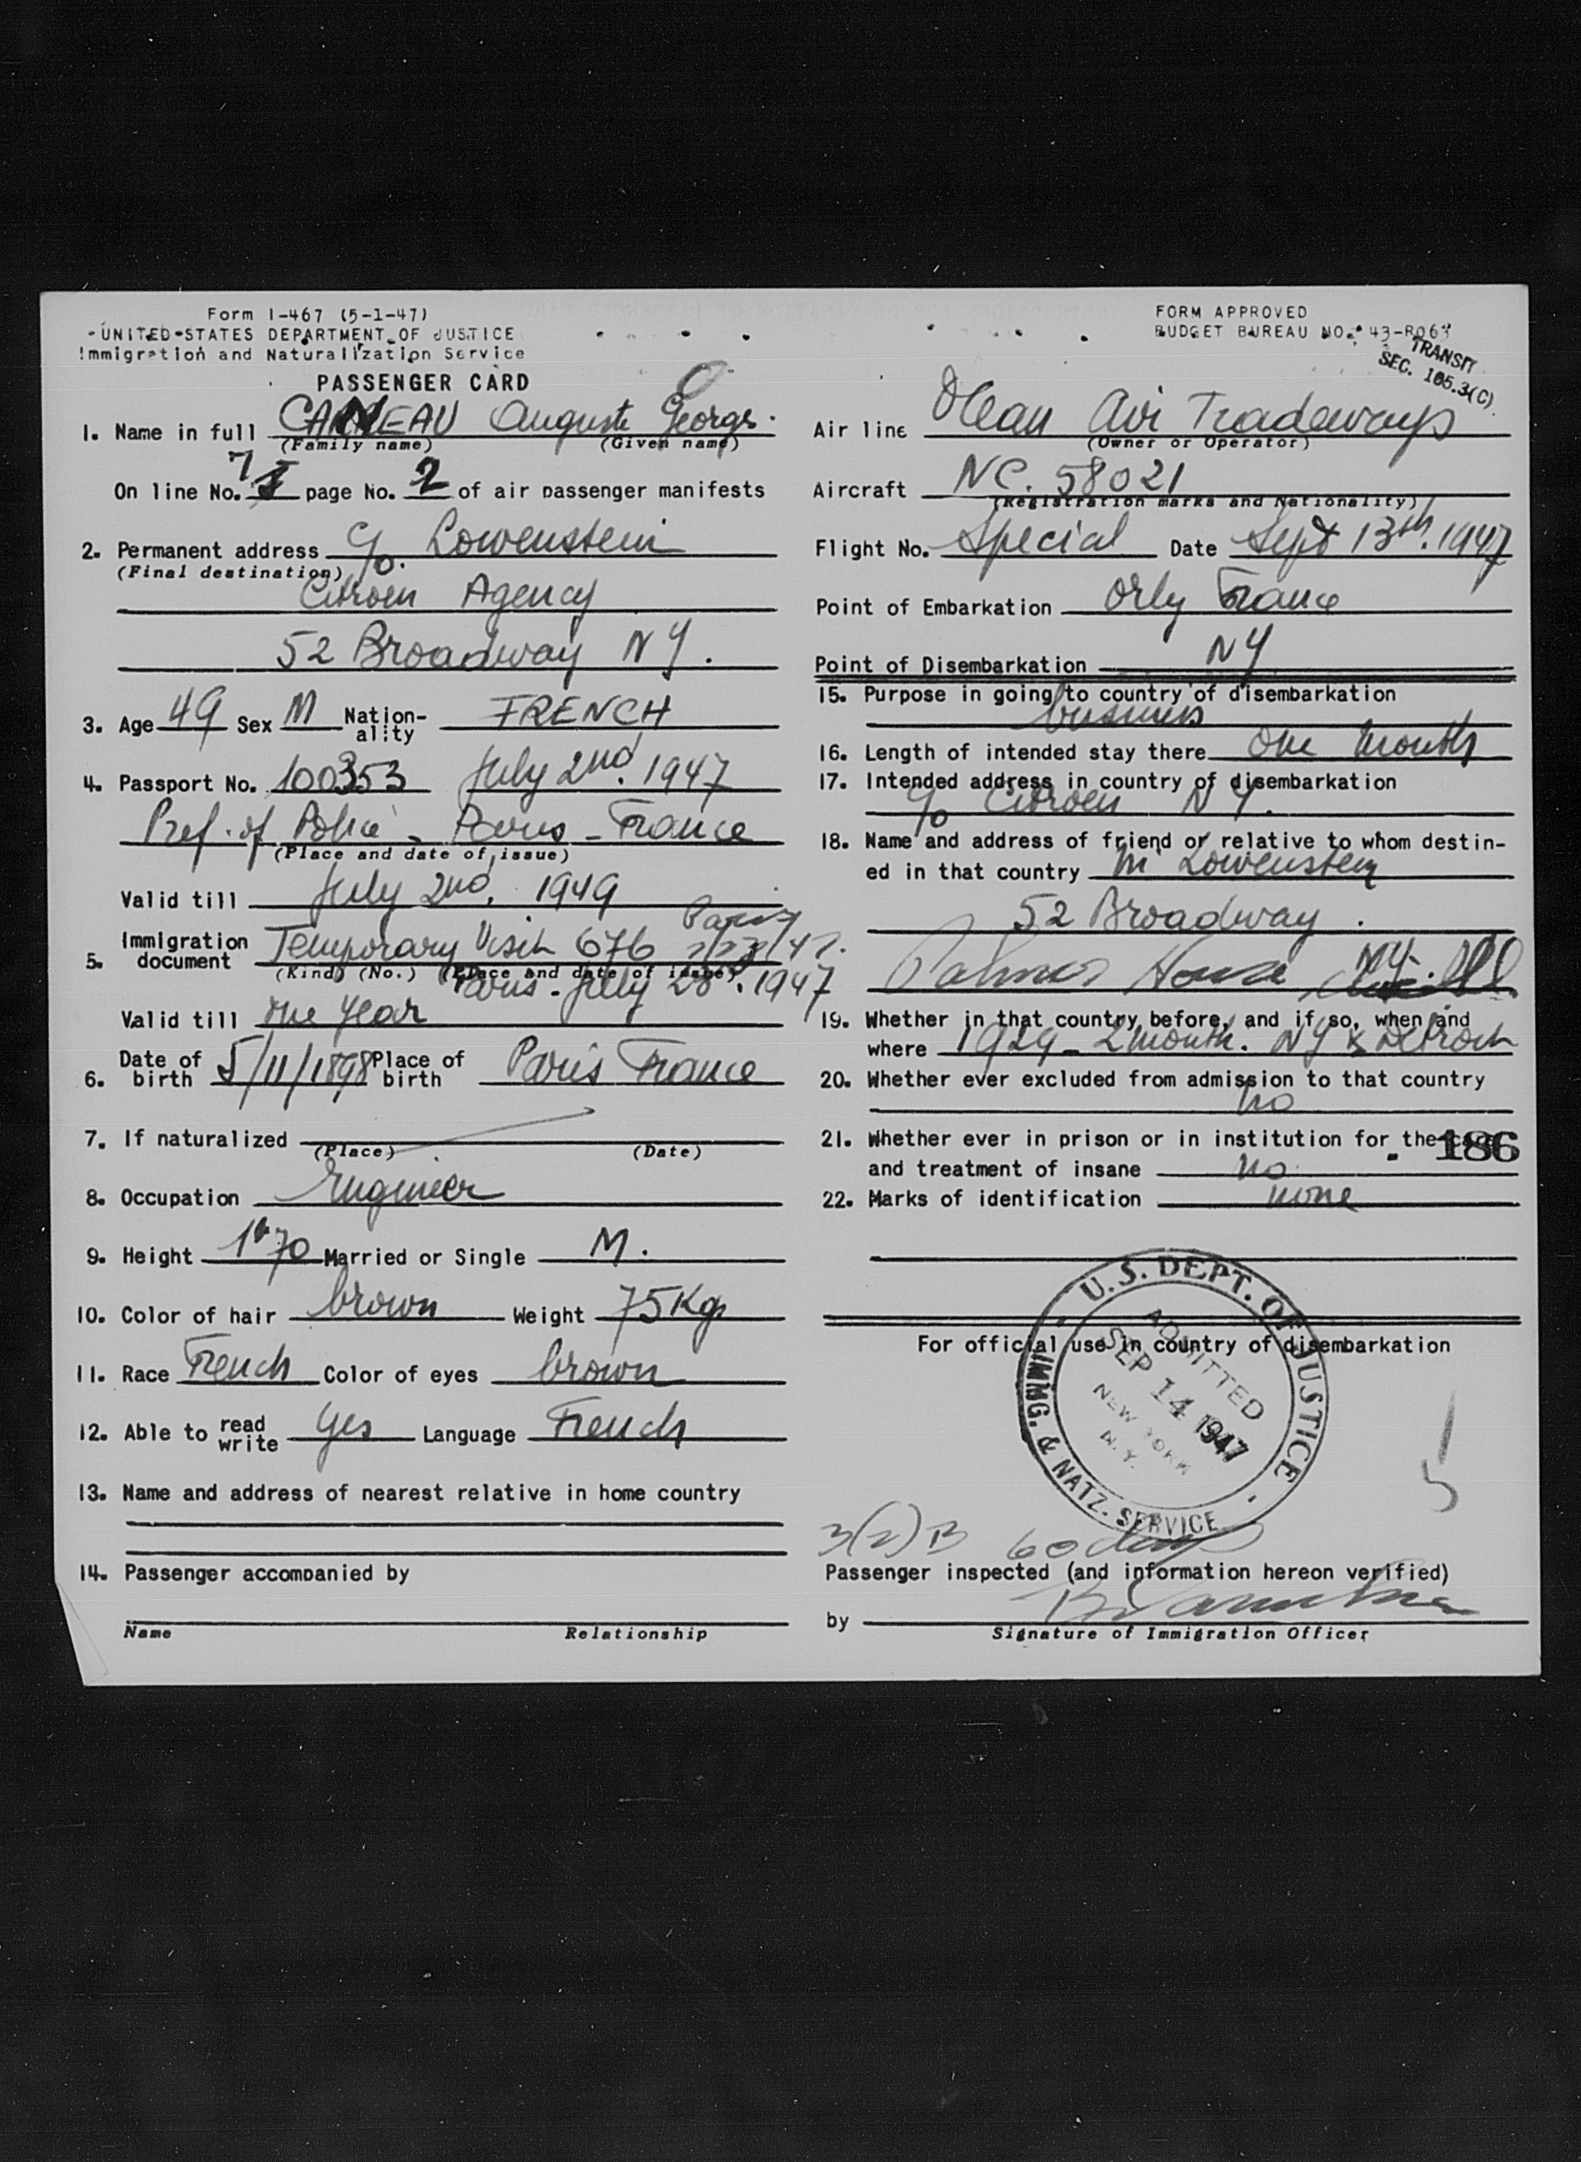 Form I-467 (5-1-47)
UNITED STATES DEPARTMENT OF JUSTICE
Immigration and Naturalization Service
PASSENGER CARD
1. Name in full CARNEAU Auguste Georges.
(Family name) (Given name)
On line No. 7 page No. 2 of air passenger manifests
2. Permanent address c/o. Lowenstein
(Final destination)
Citroen Agency
52 Broadway NY.
3. Age 49 Sex M Nation-ality FRENCH
4. Passport No. 100353 July 2nd. 1947
Pref. of Police - Paris - France
(Place and date of issue)
Valid till July 2nd. 1949
5. Immigration document Temporary Visit 676 Paris 7/28/47.
(Kind) (No.) (Place and date of issue)
Paris - July 28. 1947
Valid till One Year
6. Date of birth 5/11/1898 Place of birth Paris France
7. If naturalized
(Place) (Date)
8. Occupation Engineer
9. Height 1m70 Married or Single M.
10. Color of hair brown Weight 75Kgs
11. Race French Color of eyes brown
12. Able to read write Yes Language French
13. Name and address of nearest relative in home country
14. Passenger accompanied by
Name Relationship
FORM APPROVED
BUDGET BUREAU NO. 43-R064
TRANSIT
SEC. 105.3(C)
Air line Ocean Air Tradeways
(Owner or Operator)
Aircraft NC. 58021
(Registration marks and Nationality)
Flight No. Special Date Sept 13th. 1947
Point of Embarkation Orly France
Point of Disembarkation NY
15. Purpose in going to country of disembarkation
business
16. Length of intended stay there One month
17. Intended address in country of disembarkation
c/o Citroen NY.
18. Name and address of friend or relative to whom destin-
ed in that country M. Lowenstein
52 Broadway.
NY.
Palmer House
19. Whether in that country before, and if so, when and
where 1929 - 2 month. NY & Detroit
20. Whether ever excluded from admission to that country
no
21. Whether ever in prison or in institution for the care
186
and treatment of insane no
22. Marks of identification none
For official use in country of disembarkation
U.S. DEPT. OF JUSTICE
IMMG. & NATZ. SERVICE
ADMITTED
SEP 14 1947
NEW YORK
N.Y.
5
3(2)B 60 days
Passenger inspected (and information hereon verified)
by
Signature of Immigration Officer